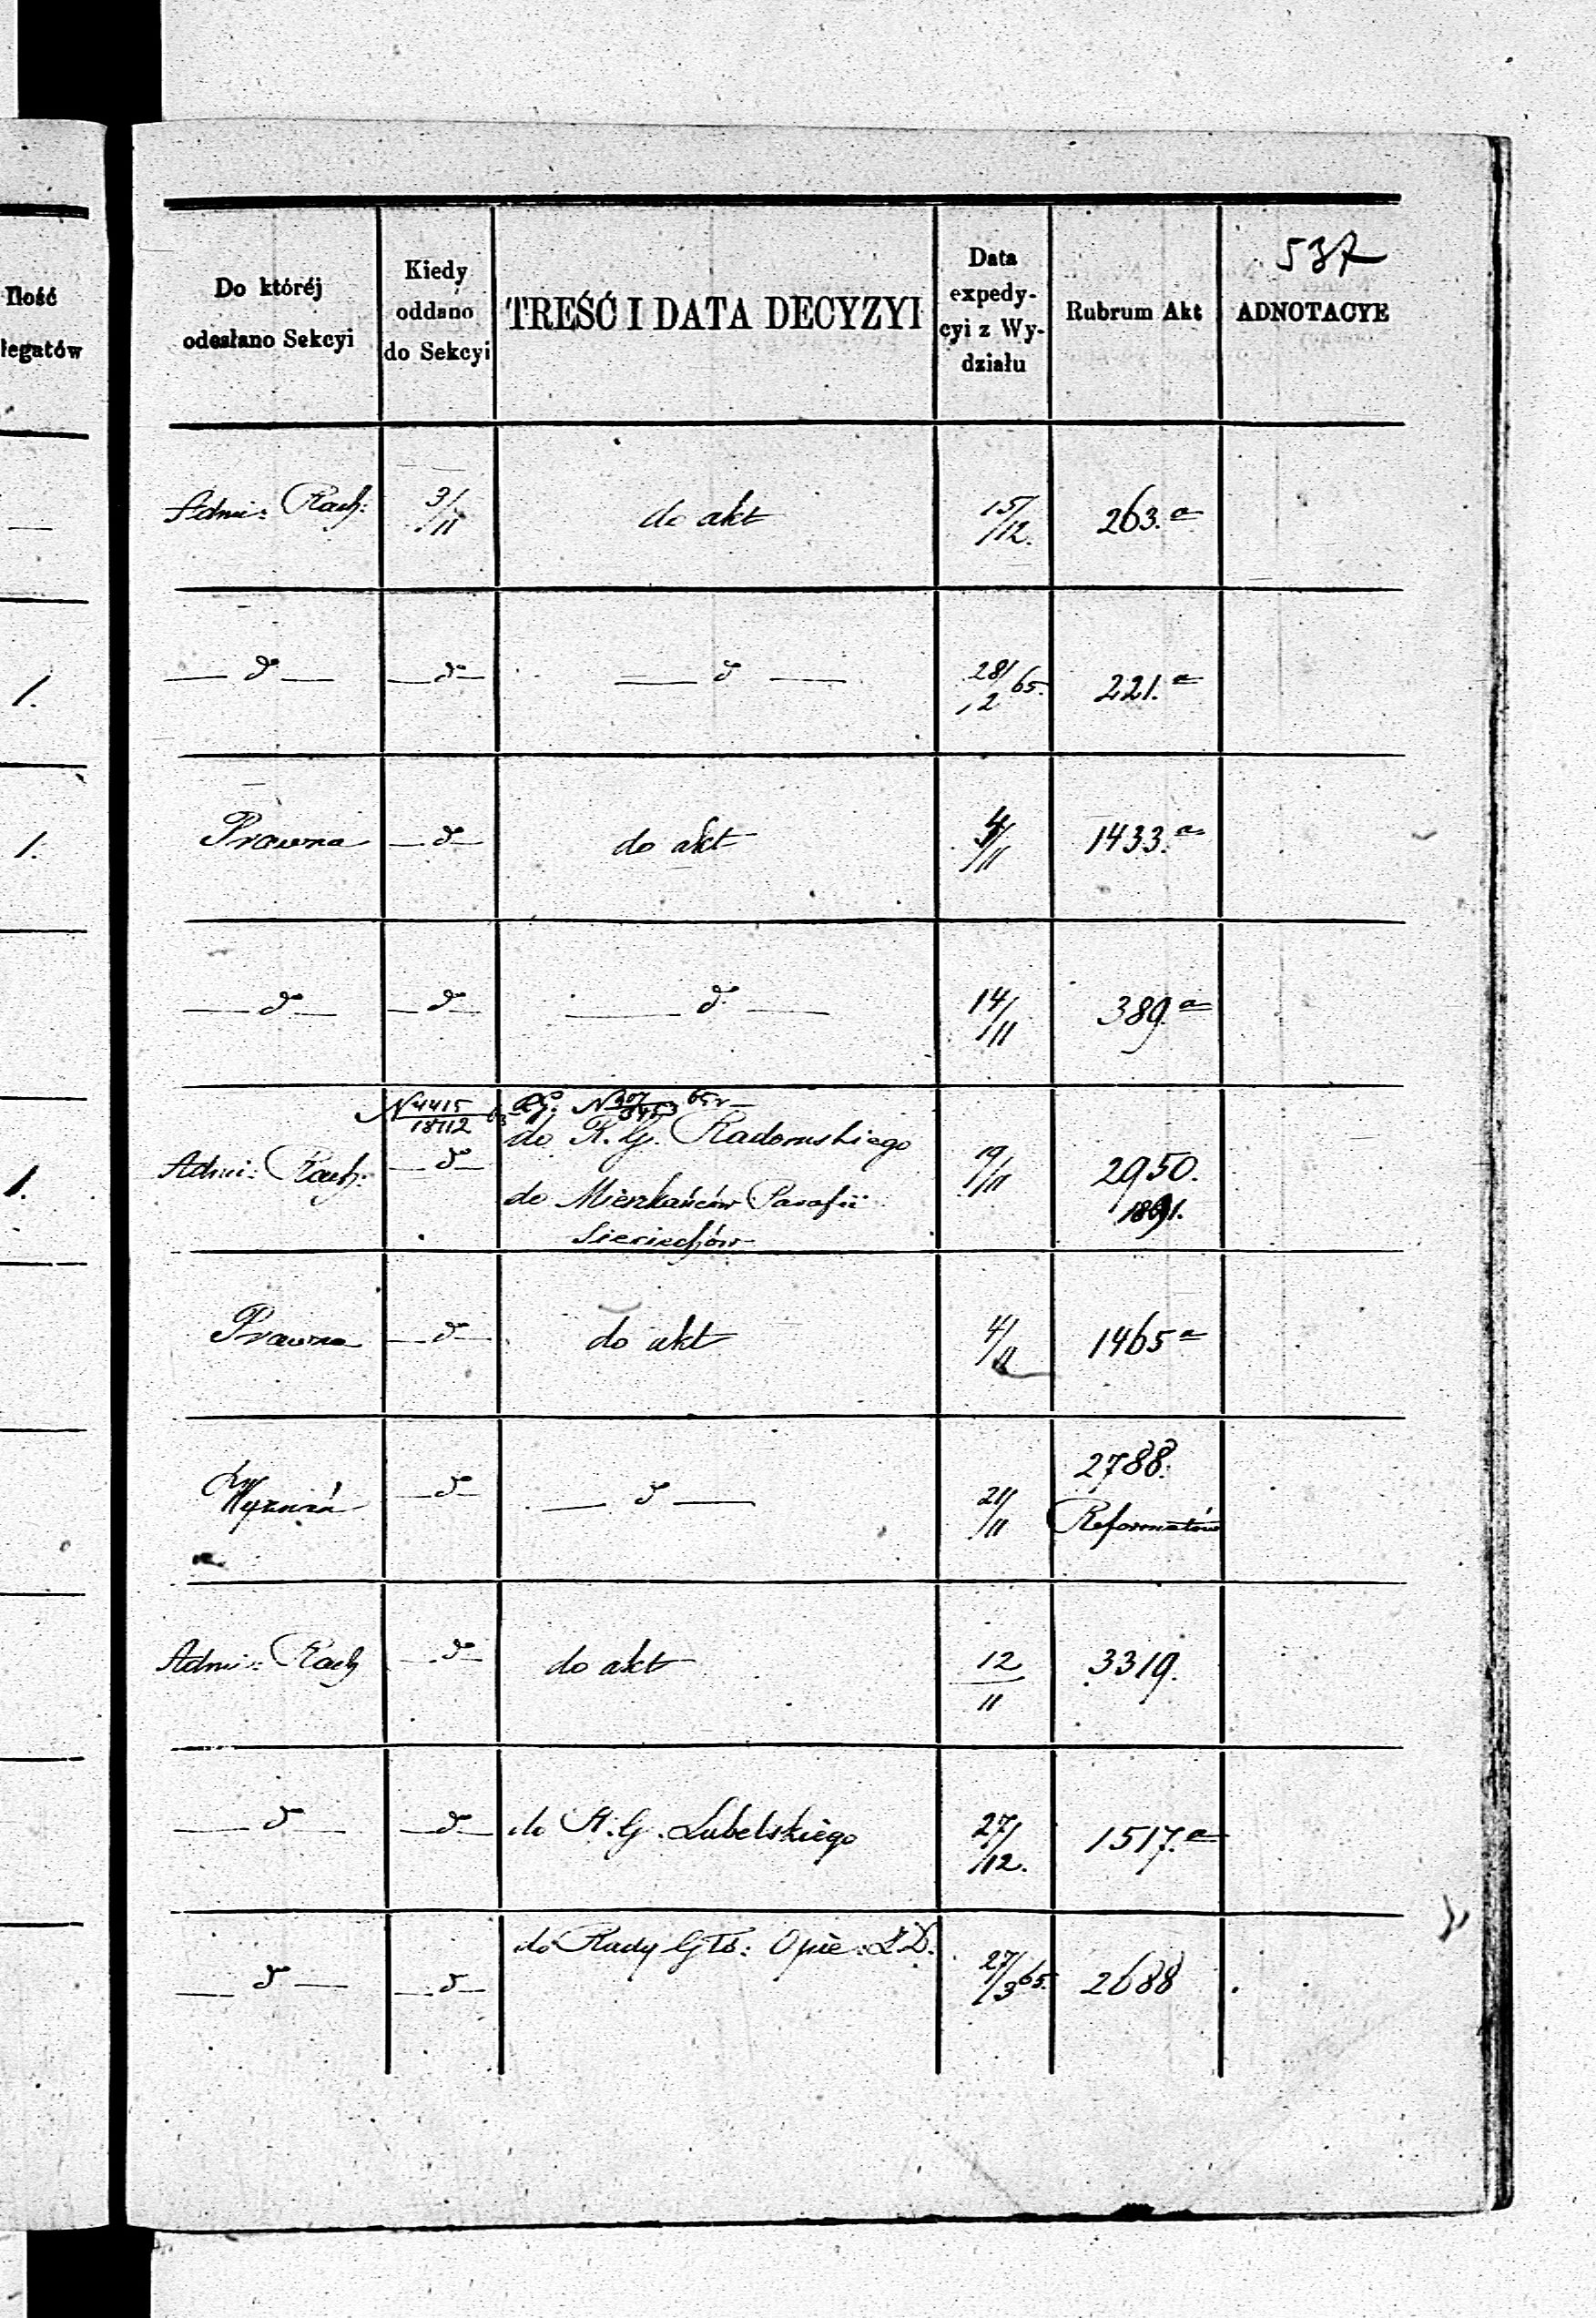 537
Ilość
łegatów
Do któréj
odesłano Sekcyi
Kiedy
oddano
do Sekcyi
TREŚĆ I DATA DECYZYI
Data
expedy-
cyi z Wy-
działu
Rubrum Akt
ADNOTACYE
Admi: Rach: 3/11 do akt 15/12. 263.a
1. — d° — — d° — — d° — 28/2 65. 221.a
1. Prawna — d° — do akt 4/11 1433.a
— d° — — d° — — d° — 14/11 389.a
N 4415/18112 63 N 307/3453 65 r
do R. G. Radomskiego
1. Admi: Rach: — d° — 19/11 2950.
do Mieszkańców Parafii 1891.
Sieciechów
Prawna — d° — do akt 4/11 1465 a
Wyznań — d° — — d° — 21/11 2788.
Reformatów
Admi: Rach — d° — do akt 12/11 3319.
— d° — — d° — do R. G. Lubelskiego 27/12. 1517.a
do Rady Głó: Opie: Z.D.
— d° — — d° — 27/3 65. 2688